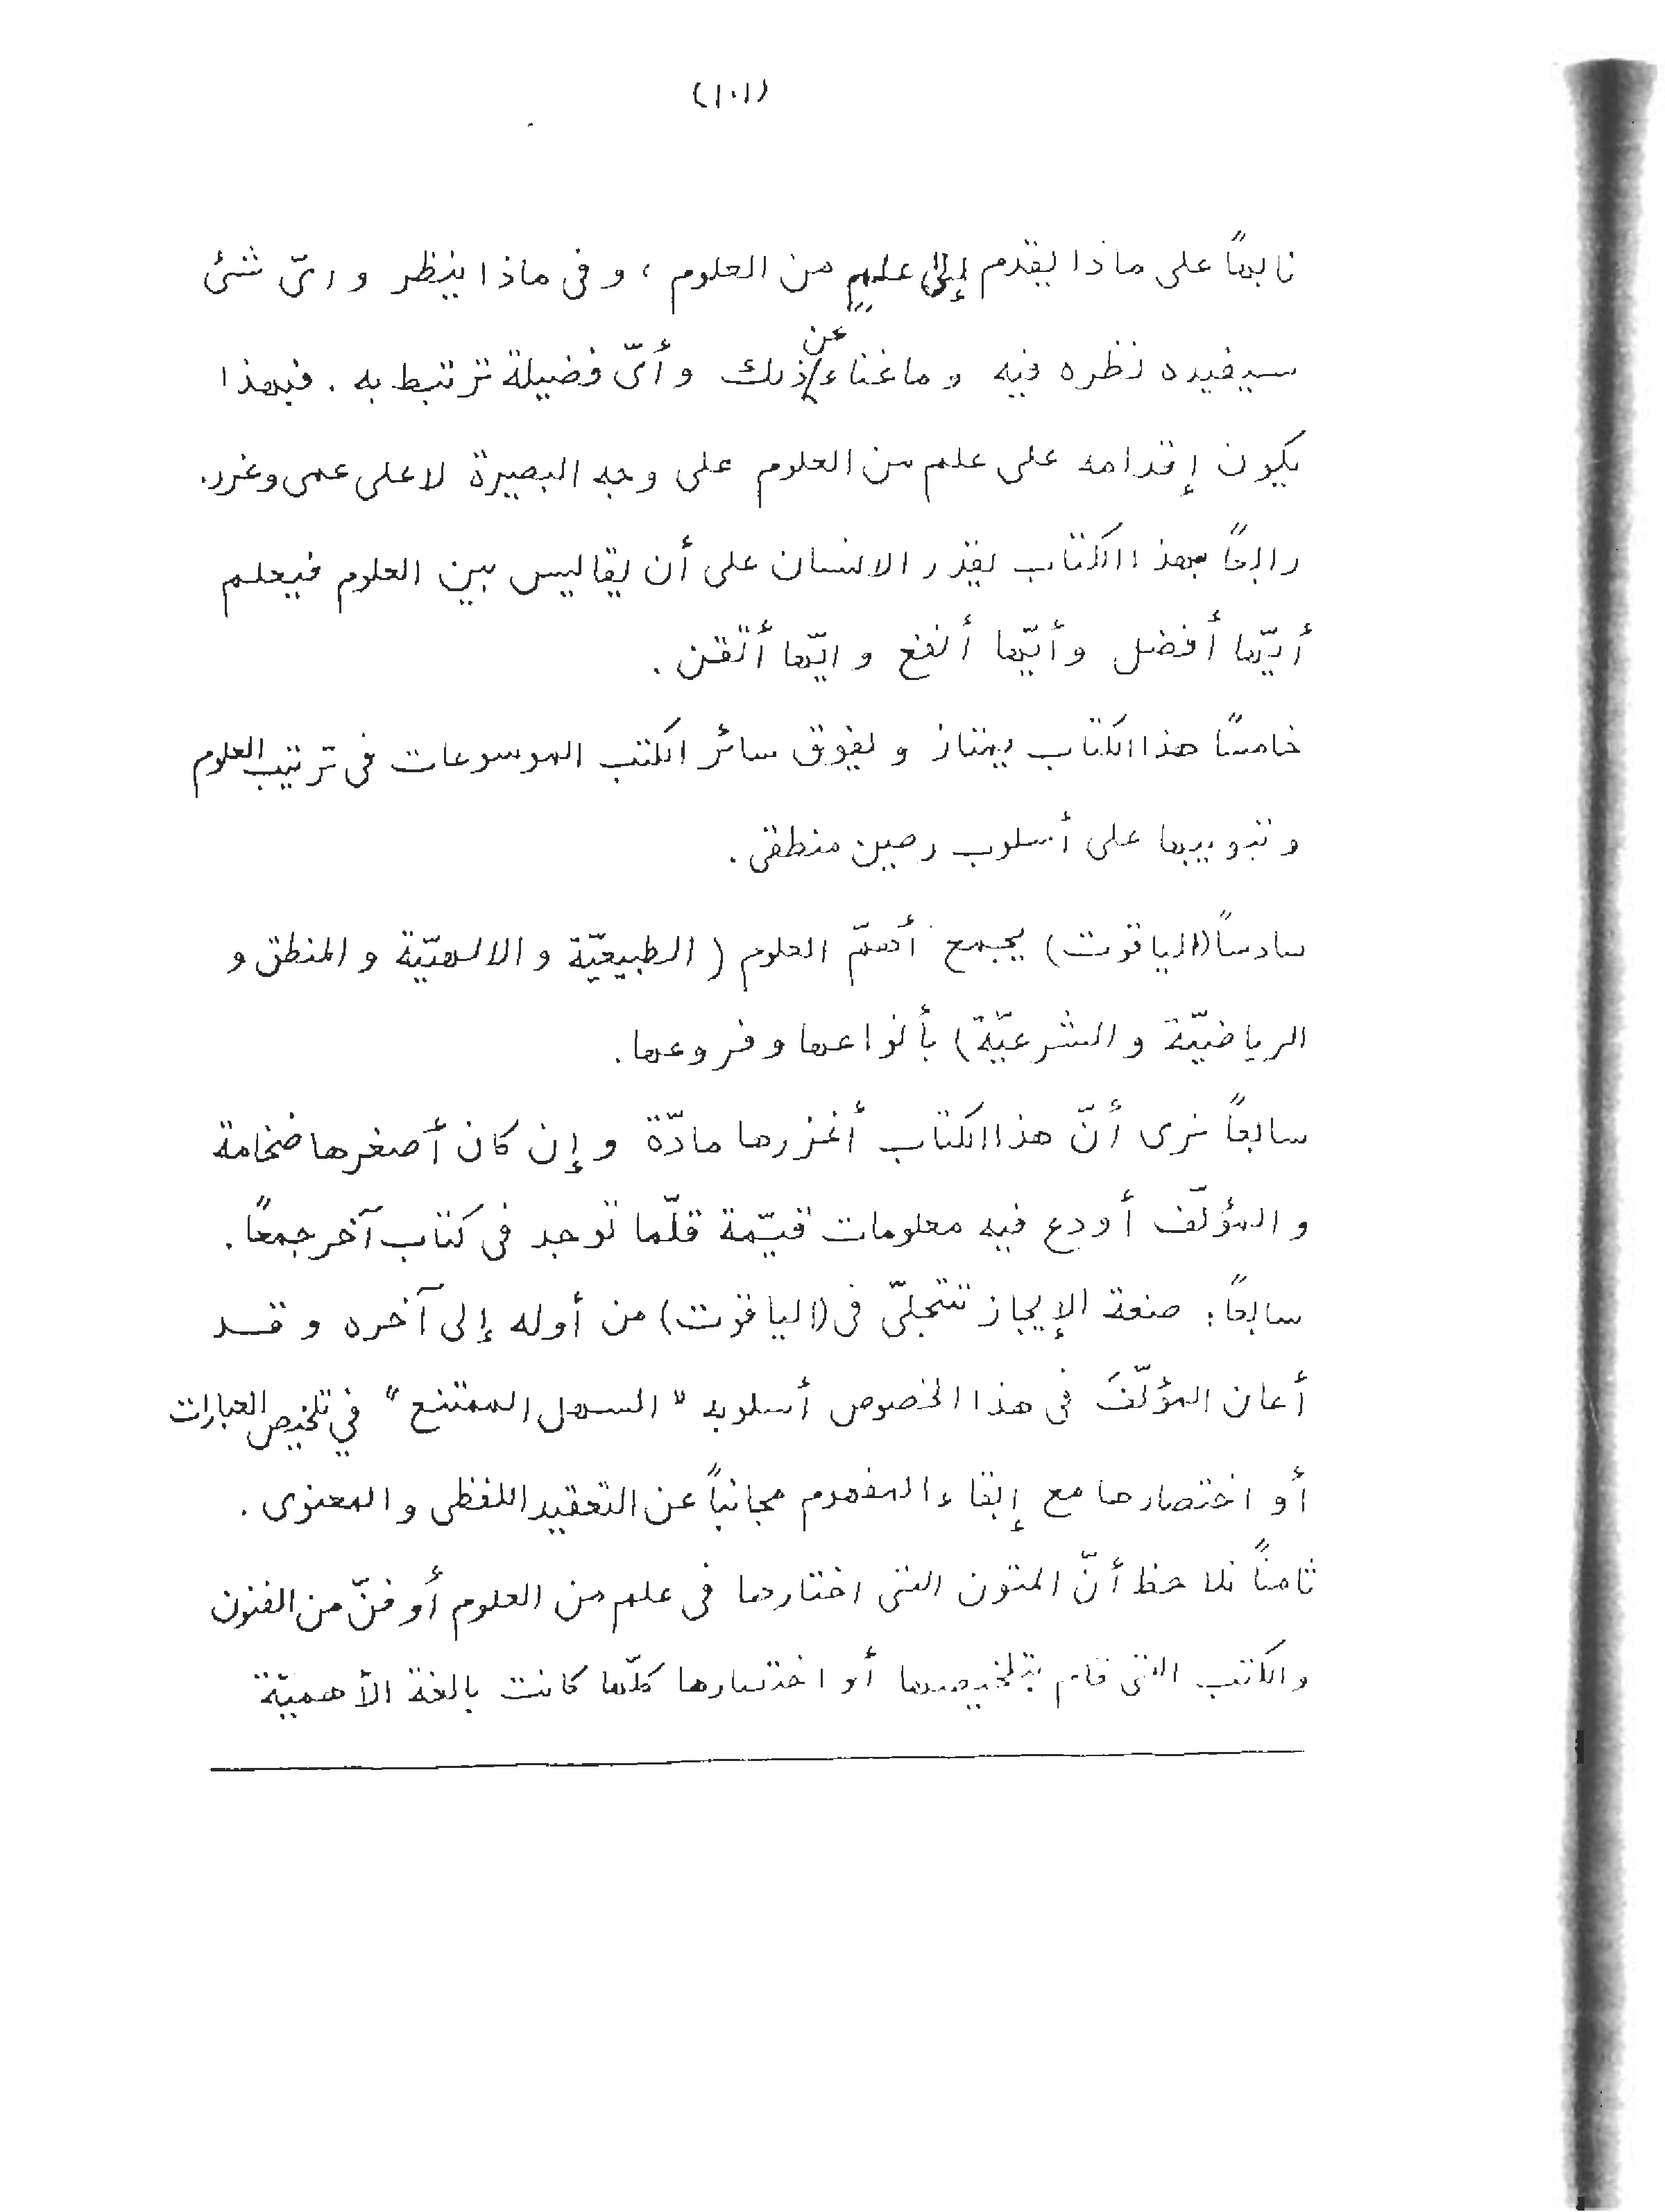 (١٠١)
نابهاً على ماذا يقدم إلى علم من العلوم ، و فى ماذا ينظر و اىّ شئ
سيفيده نظره فيه و ما غناء عن ذلك و أىّ فضيلة ترتبط به . فبهذا
يكون إقدامه على علم من العلوم على وجه البصيرة لا على عمى وغرر.
رابعًا بهذا الكتاب يقدر الانسان على أن يقاليس بين العلوم فيعلم
أيّها أفضل و أيّها أنفع و ايّها أتقن .
خامسًا هذا الكتاب يمتاز و يفوق سائر الكتب الموسوعات فى ترتيب العلوم
و تبويبها على أسلوب رصين منطقى .
سادساً (الياقوت) يجمع أهمّ العلوم ( الطبيعيّة و الالهيّة و المنطق و
الرياضيّة و الشرعيّة) بأنواعها و فروعها.
سابعاً نرى أنّ هذا الكتاب أغزرها مادّة و إن كان أصغرها ضخامة
و المؤلّف أودع فيه معلومات قيّمة قلّما توجد فى كتاب آخر جمعًا .
سابعًا : صنعة الإيجاز تتجلىّ فى (الياقوت) من أوله إلى آخره و قد
أعان المؤلّفَ فى هذا الخصوص أسلوبه "السهل الممتنع" في تلخيص العبارات
أو اختصارها مع إبقاء المفهوم مجانباً عن التعقيد اللفظى و المعنوى .
ثامنًا نلاحظ أنّ المتون التى اختارها فى علم من العلوم أو فنّ من الفنون
والكتب التى قام بتلخيصها أو اختصارها كلّها كانت بالغة الأهميّة